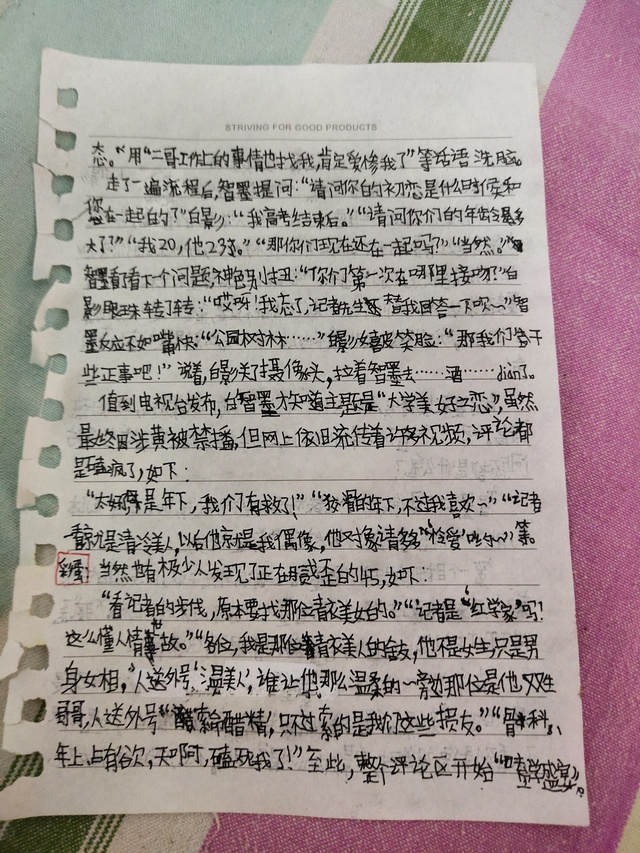 STRIVING FOR GOOD PRODUCTS
态。”用“二哥工作上的事情也找我,肯定爱惨我了”等话语洗脑。
走了一遍流程后,智墨提问:“请问你的初恋是什么时候和
您在一起的?”白影:“我高考结束后。”“请问你们的年龄是多
大了?”“我20,他23。”“那你们现在还在一起吗?”“当然。”
智墨看看下个问题,神色别扭:“你们第一次在哪里接吻?”白
影眼珠转了转:“哎呀!我忘了,记者先生替我回答一下呗~”智
墨反应不如嘴快:“公园树林……”影嬉皮笑脸:“那我们今干
些正事吧!”说着,白影关了摄像头,拉着智墨去……酒……diàn了。
值到电视台发布,白智墨才知道主题是“大学美好之恋”,虽然
最终因涉黄被禁播,但网上依旧流传着许多视频,评论都
是嗑疯了,如下:
“太好了是年下,我们有救了!”“狡猾的年下,不过我喜欢~”“记者
看就是清冷美人,以后他就是我偶像,他对象请多‘怜爱’他~”等。
彩蛋:当然也有极少人发现了正在歪的45,如下:
“看记者的步伐,原本要找那位青衣美女的。”“记者是‘红学家’吗?
这么懂人情世故。”“各位,我是那位青衣美人的舍友,他不是女生,只是男
身女相,人送外号‘温美人’,谁让他那么温柔的~旁边那位是他双胞
哥哥,人送外号‘醋精’,只不过索的是我们这些损友。”“骨科,
年上,占有欲,天啊,嗑死我了!”至此,整个评论区开始“嗑学盛宴”。